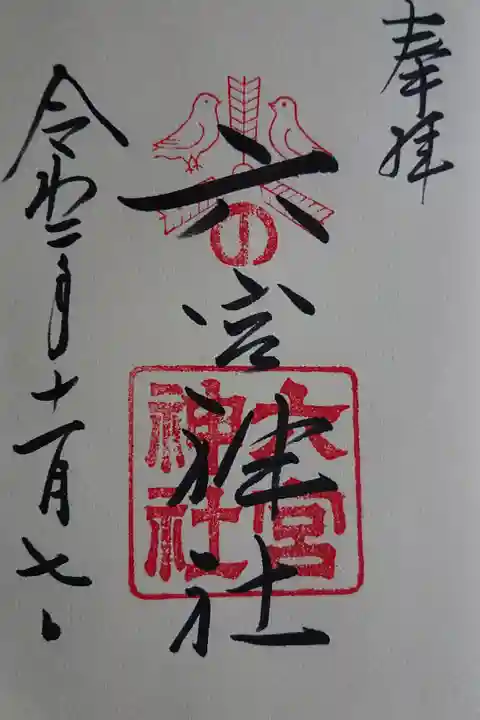 奉拝
六宮神社
の
六宮神社
令和二年十一月七日